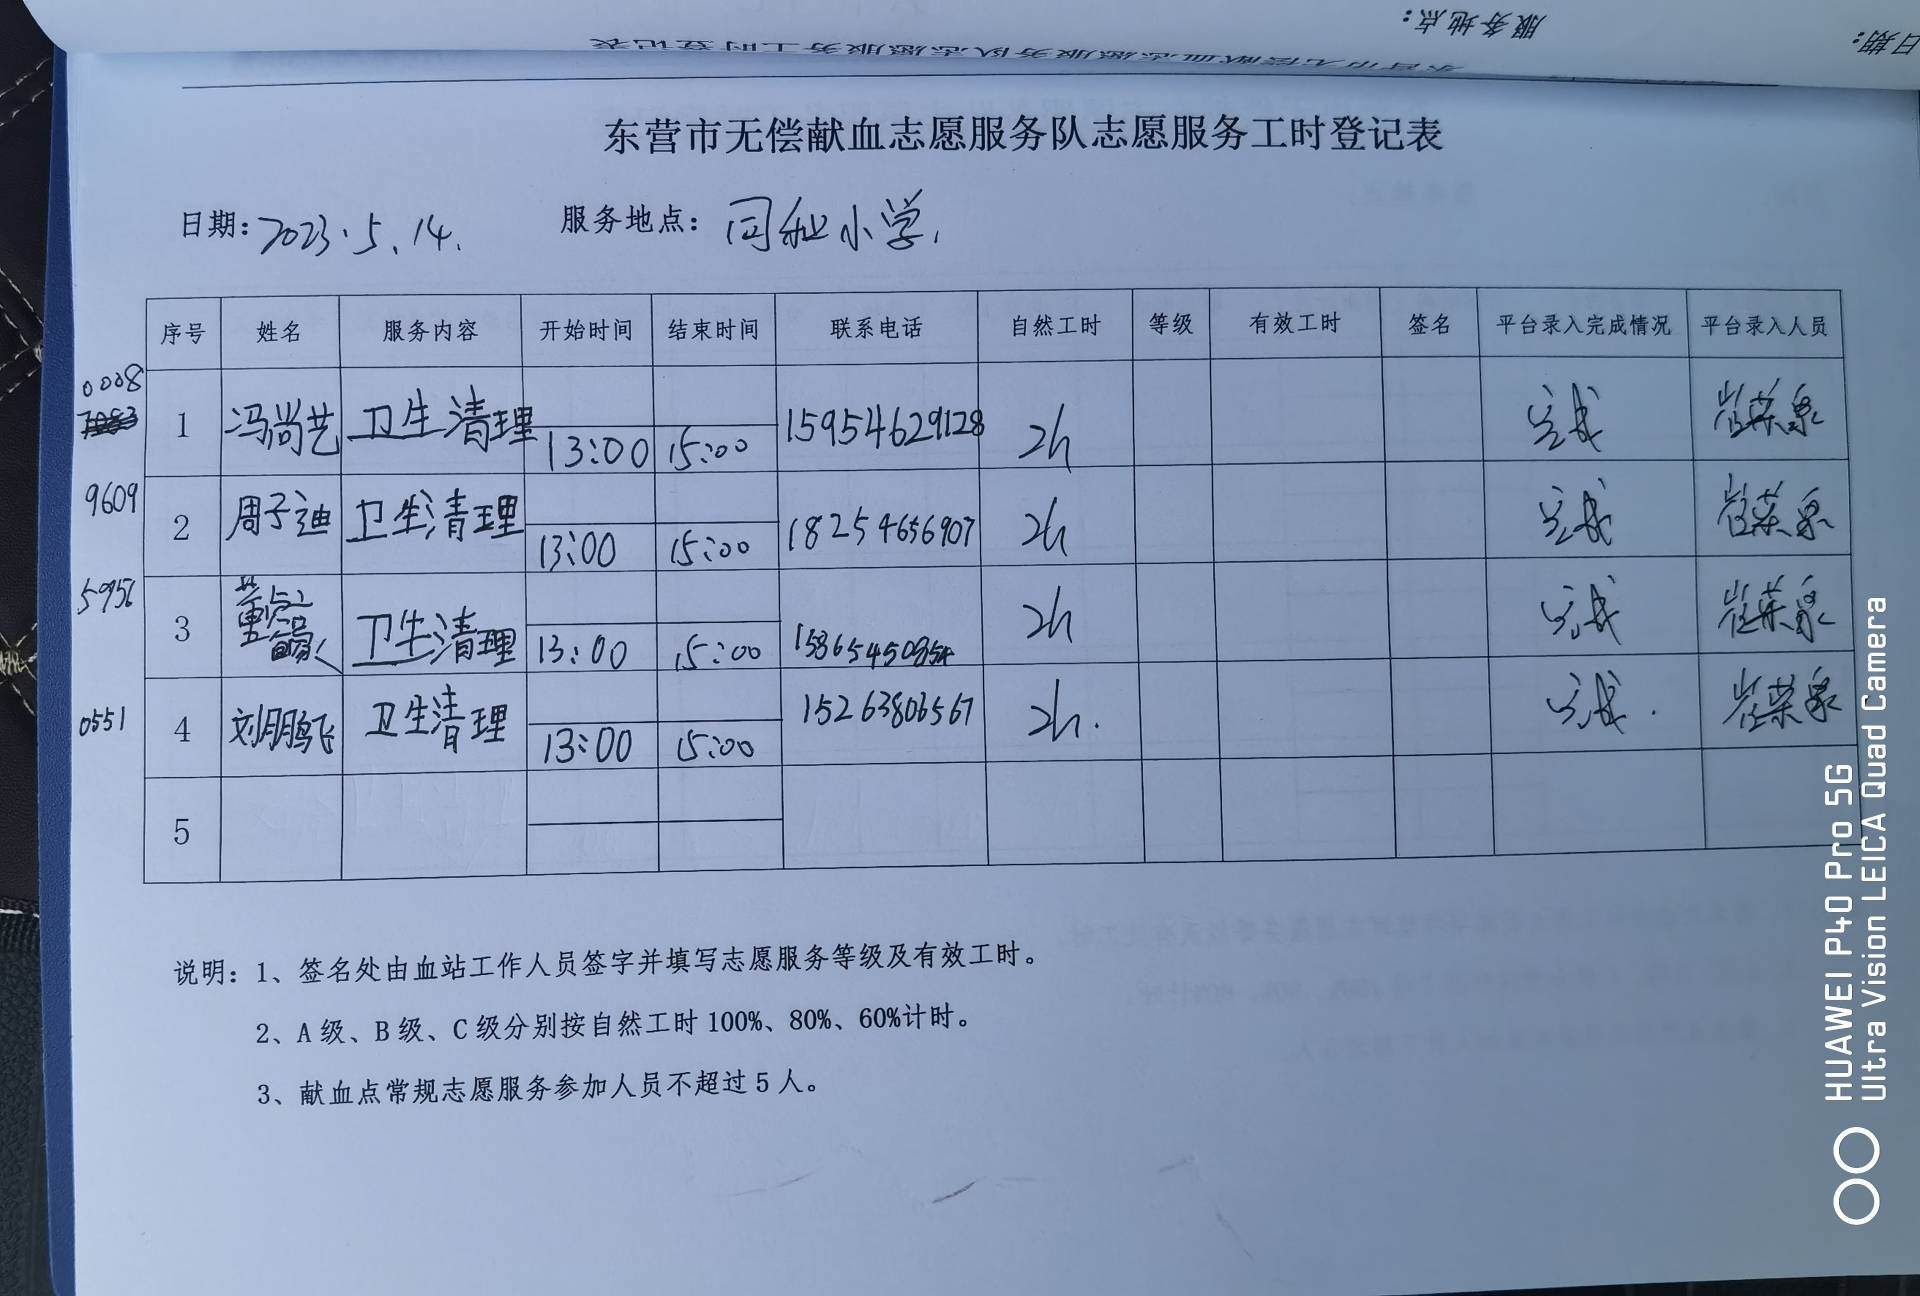 东营市无偿献血志愿服务队志愿服务工时登记表
日期: 2023.5.14. 服务地点: 同和小学.
序号 姓名 服务内容 开始时间 结束时间 联系电话 自然工时 等级 有效工时 签名 平台录入完成情况 平台录入人员
0008
1 冯尚艺 卫生清理 13:00 15:00 15954629128 2h 完成 崔荣泉
9609
2 周子迪 卫生清理 13:00 15:00 18254656907 2h 完成 崔荣泉
5956
3 卫生清理 13:00 15:00 2h 完成 崔荣泉
0551
4 刘鹏飞 卫生清理 13:00 15:00 15263806567 2h. 完成. 崔荣泉
5
说明: 1、签名处由血站工作人员签字并填写志愿服务等级及有效工时。
2、A级、B级、C级分别按自然工时100%、80%、60%计时。
3、献血点常规志愿服务参加人员不超过5人。
服务地点:
日期:
东营市无偿献血志愿服务队志愿服务工时登记表
HUAWEI P40 Pro 5G
Ultra Vision LEICA Quad Camera